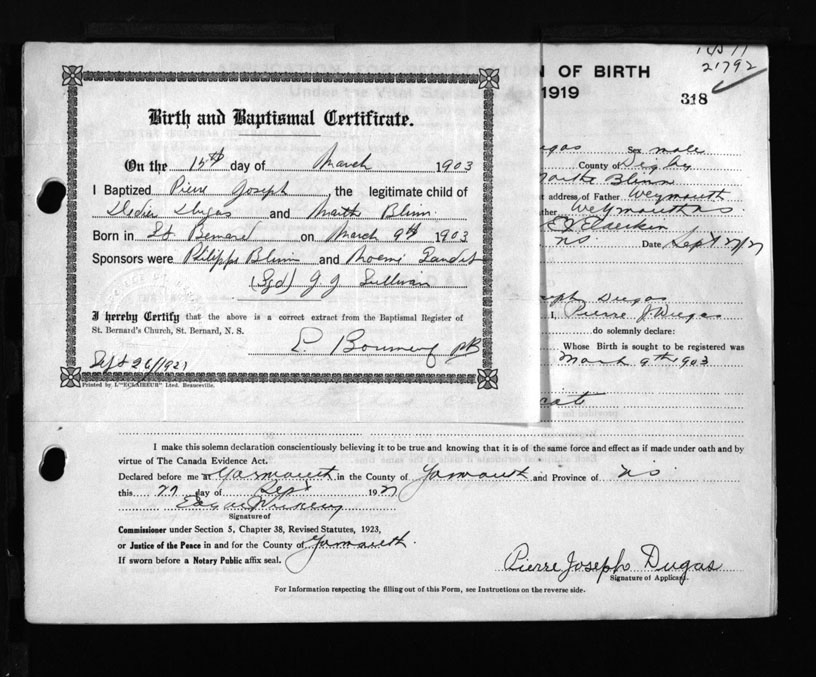 Birth and Baptismal Certificate.
On the 15th day of March 1903
I Baptized Pierre Joseph, the legitimate child of
Dugas and Marthe Blinn
Born in St Bernard on March 9th 1903
Sponsors were Philippe Blinn and
(Sgd) J. J. Sullivan
I hereby Certify that the above is a correct extract from the Baptismal Register of
St. Bernard's Church, St. Bernard, N. S.
Sept 26/1921
Printed by L'"ECLAIREUR" Lted. Beauceville.
OF BIRTH
1919
21792
318
Sex male
County of Digby
Marthe Blinn
address of Father Weymouth
Weymouth NS
NS Date Sept 27/27
Joseph Dugas
I, Pierre J Dugas
do solemnly declare:
Whose Birth is sought to be registered was
March 9th 1903
I make this solemn declaration conscientiously believing it to be true and knowing that it is of the same force and effect as if made under oath and by
virtue of The Canada Evidence Act.
Declared before me at Yarmouth in the County of Yarmouth and Province of NS
this 27 day of Sept 1927
Signature of
Commissioner under Section 5, Chapter 38, Revised Statutes, 1923,
or Justice of the Peace in and for the County of Yarmouth.
If sworn before a Notary Public affix seal.
Pierre Joseph Dugas
Signature of Applicant.
For Information respecting the filling out of this Form, see Instructions on the reverse side.